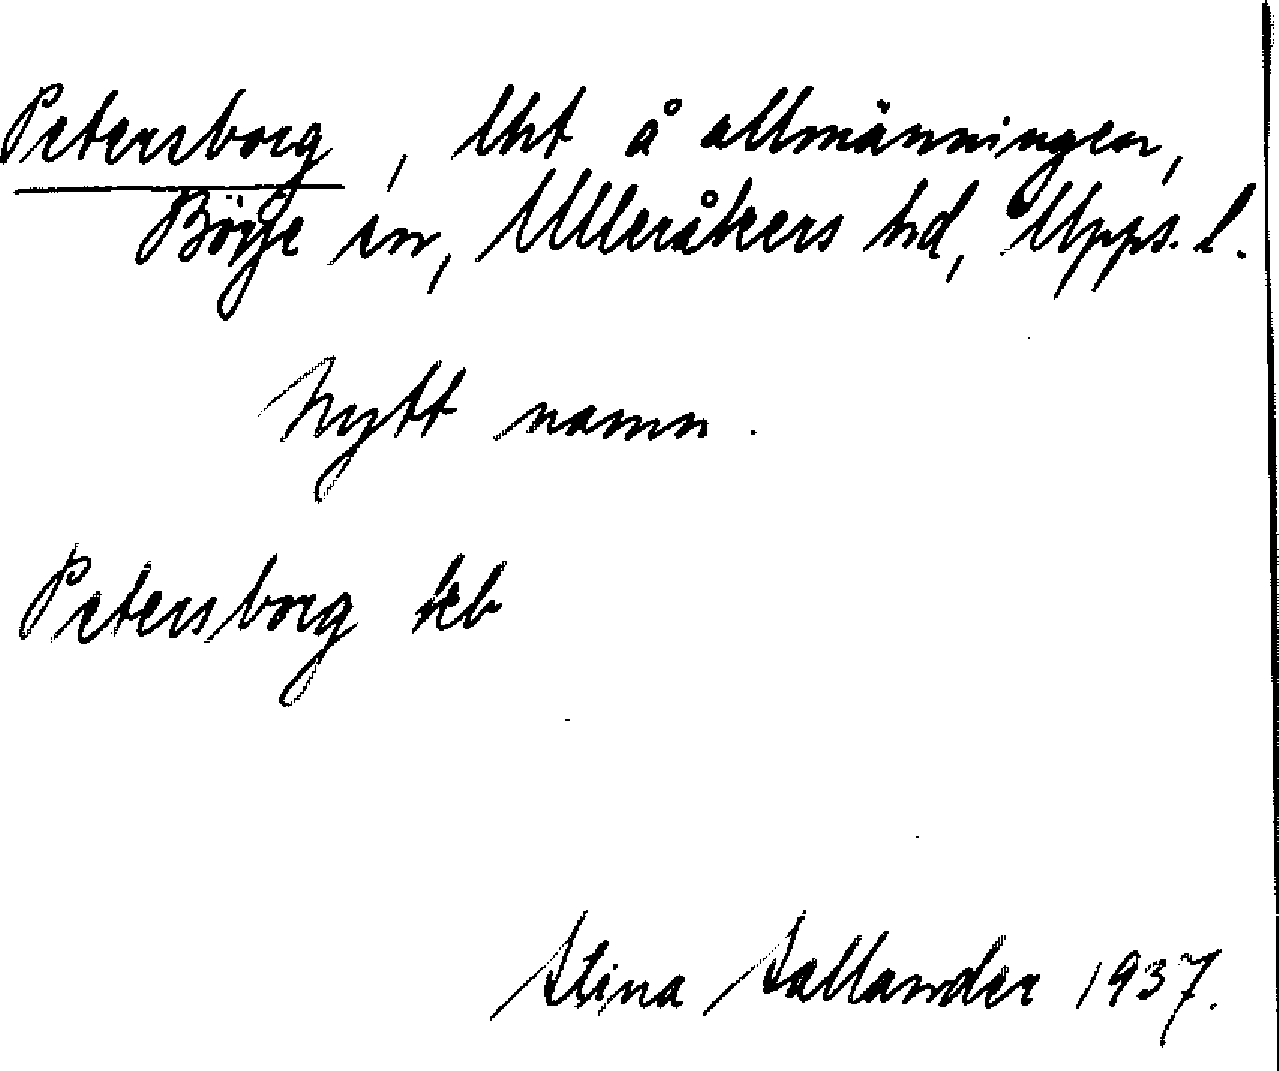 Petersborg, lht å allmänningen,
Börje sn, Ulleråkers hd, Upps. l.
Nytt namn.
Petersborg keb
Stina Sallander 1937.